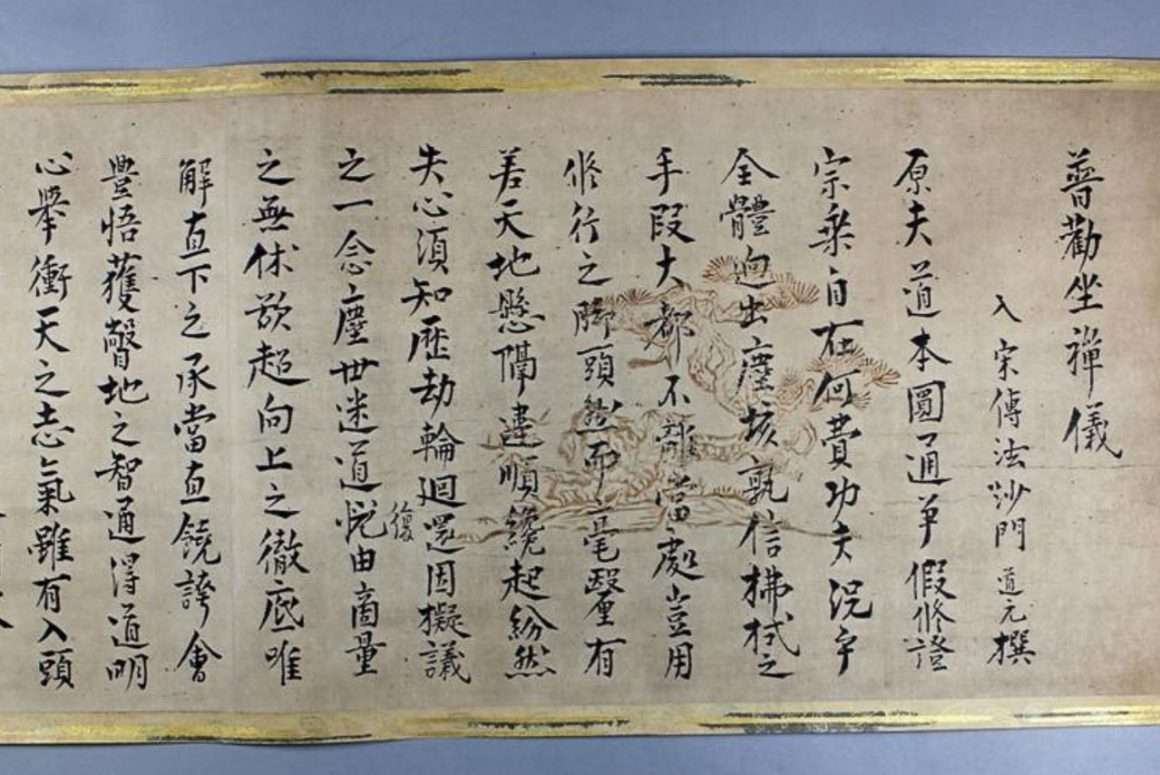 普勸坐禪儀
入宋傳法沙門 道元 撰
原夫道本圓通爭假修證
宗乘自在何費功夫況乎
全體逈出塵埃孰信拂拭之
手段大都不離當處豈用
修行之脚頭然而毫釐有
差天地懸隔違順纔起紛然
失心須知歷劫輪廻還因擬議
之一念塵世迷道復由商量
之無休欲超向上之徹底唯
解直下之承當直饒誇會
豐悟獲瞥地之智通得道明
心擧衝天之志氣雖有入頭